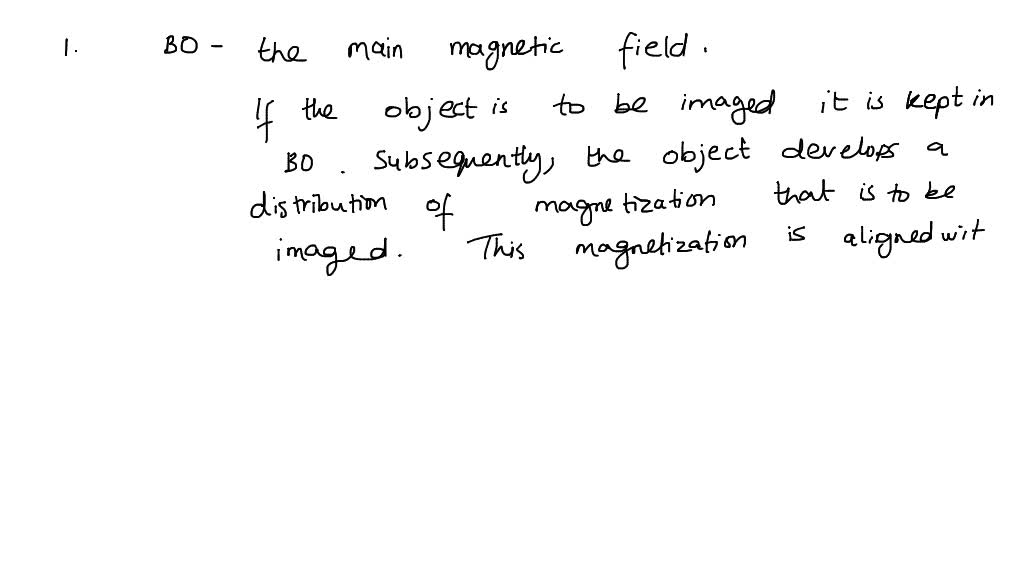 1. BO - the main magnetic field.
If the object is to be imaged it is kept in
BO. Subsequently, the object develops a
distribution of magnetization that is to be
imaged. This magnetization is aligned wit